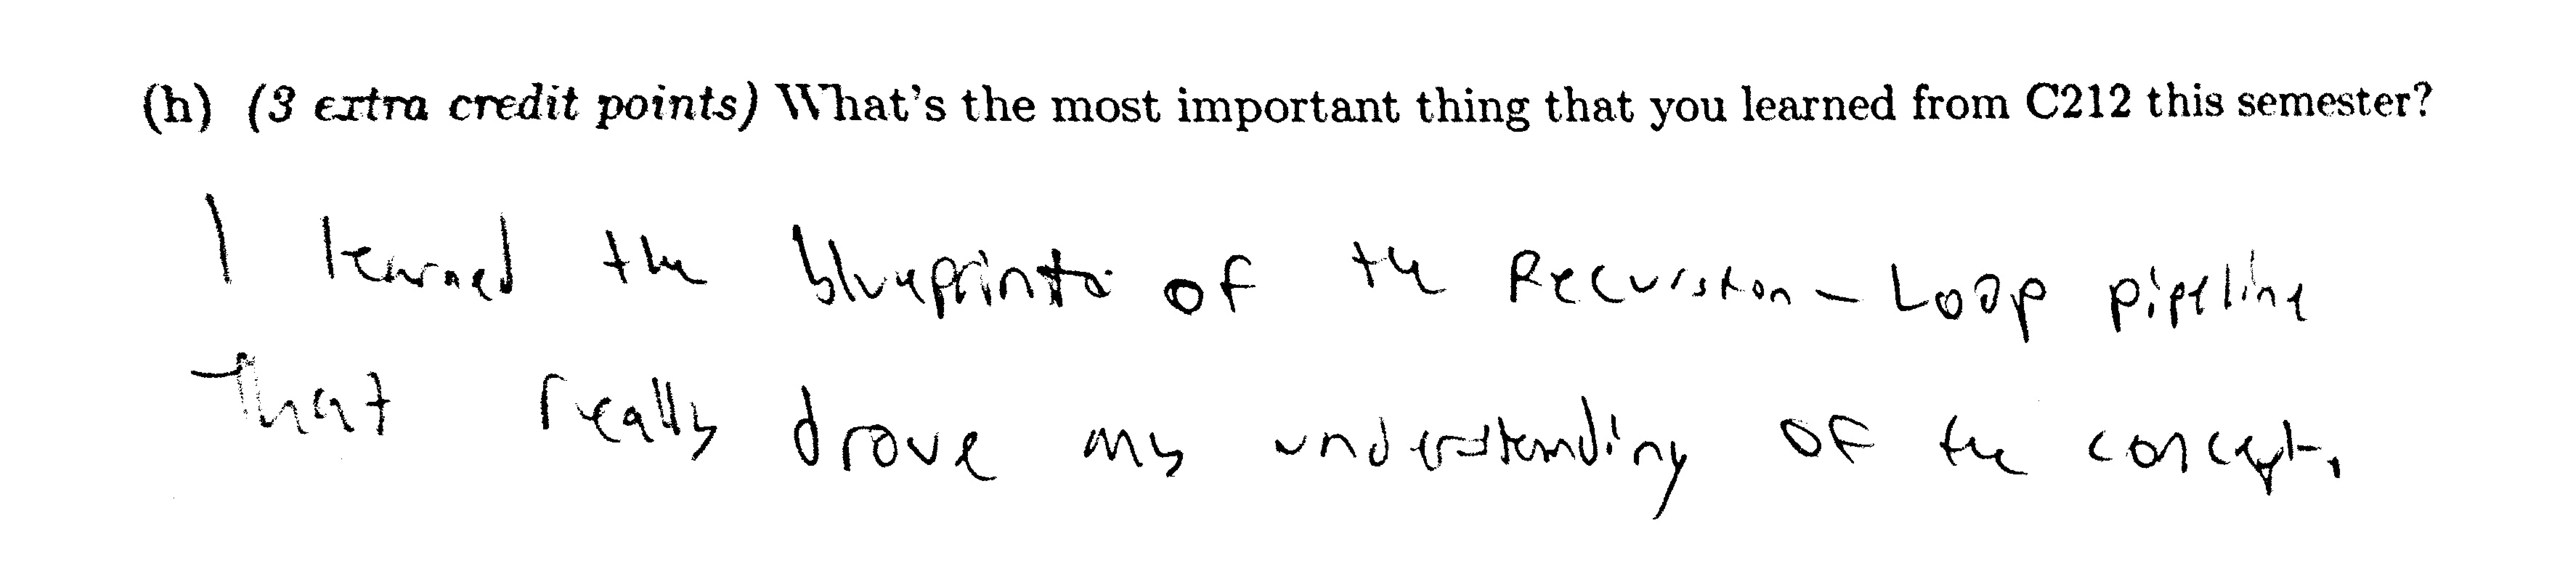 (h) (3 extra credit points) What's the most important thing that you learned from C212 this semester?
I learned the blueprints of the Recursion - Loop pipeline
That really drove my understanding of the concept.